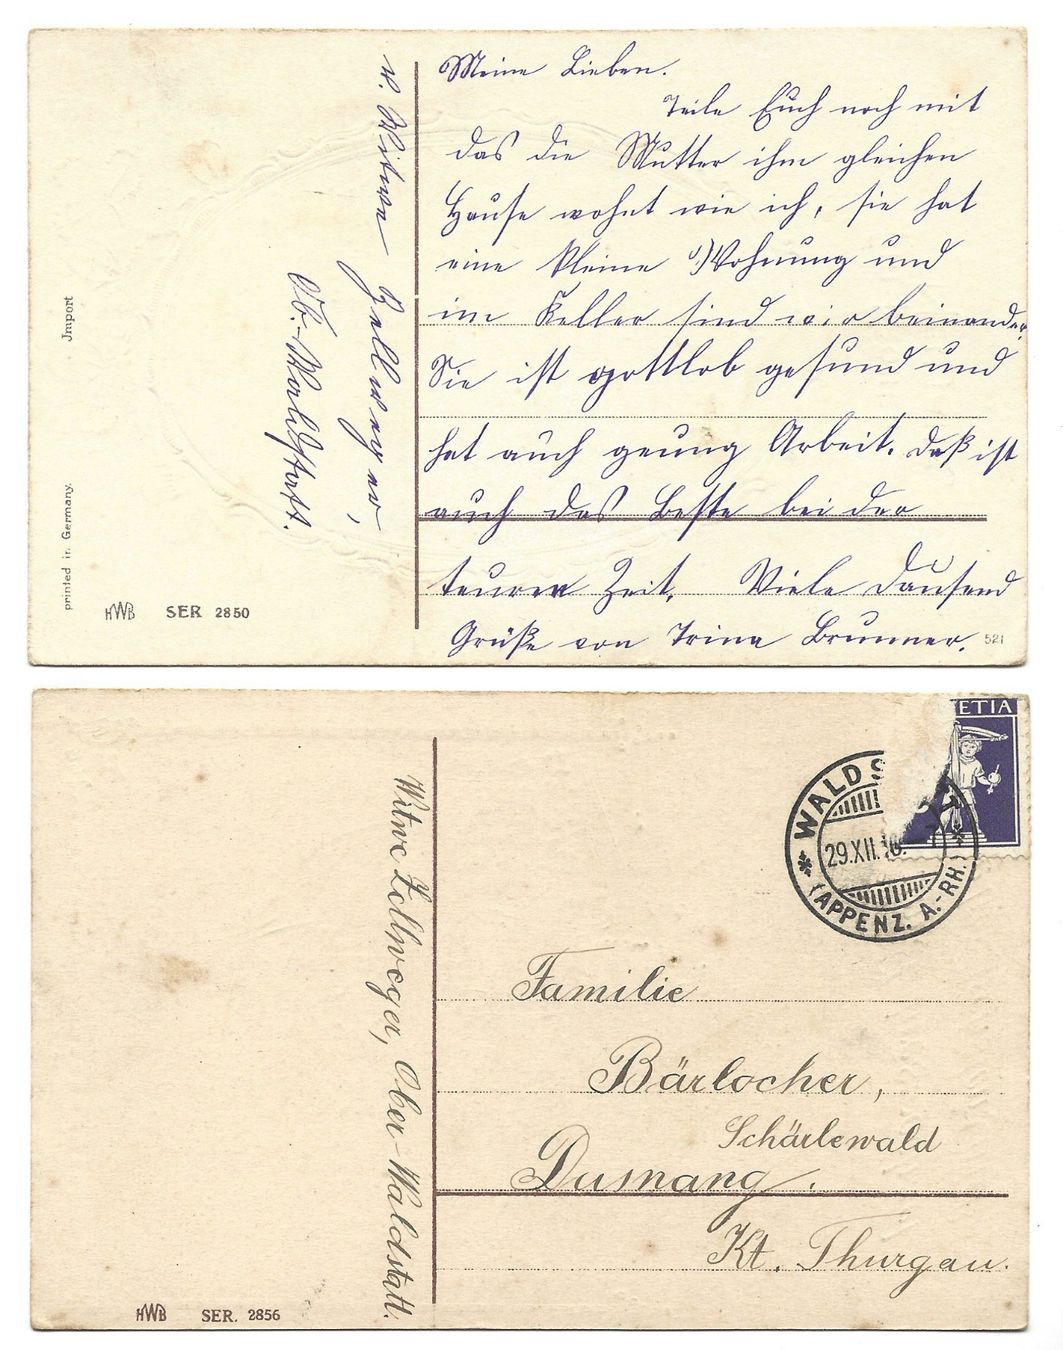 Meine Lieben.
Teile Euch noch mit
das die Mutter ihm gleichen
Hause wohnt wie ich, sie hat
eine kleine Wohnung und
im Keller sind wir beinander.
Sie ist gottlob gesund und
hat auch genung Arbeit. Daß ist
auch das Beste bei der
teuren Zeit. Viele Dausend
Grüße von Trina Brunner.
v. Witwe Zellweger,
Ob.-Waldstatt.
Jmport
printed in Germany.
HWB SER 2850
521
ETIA
WALDS T
29.XII.
(APPENZ. A.-RH.)
Familie
Bärlocher,
Schärlewald
Dusnang.
Kt. Thurgau.
Witwe Zellweger, Ober-Waldstatt.
HWB SER. 2856